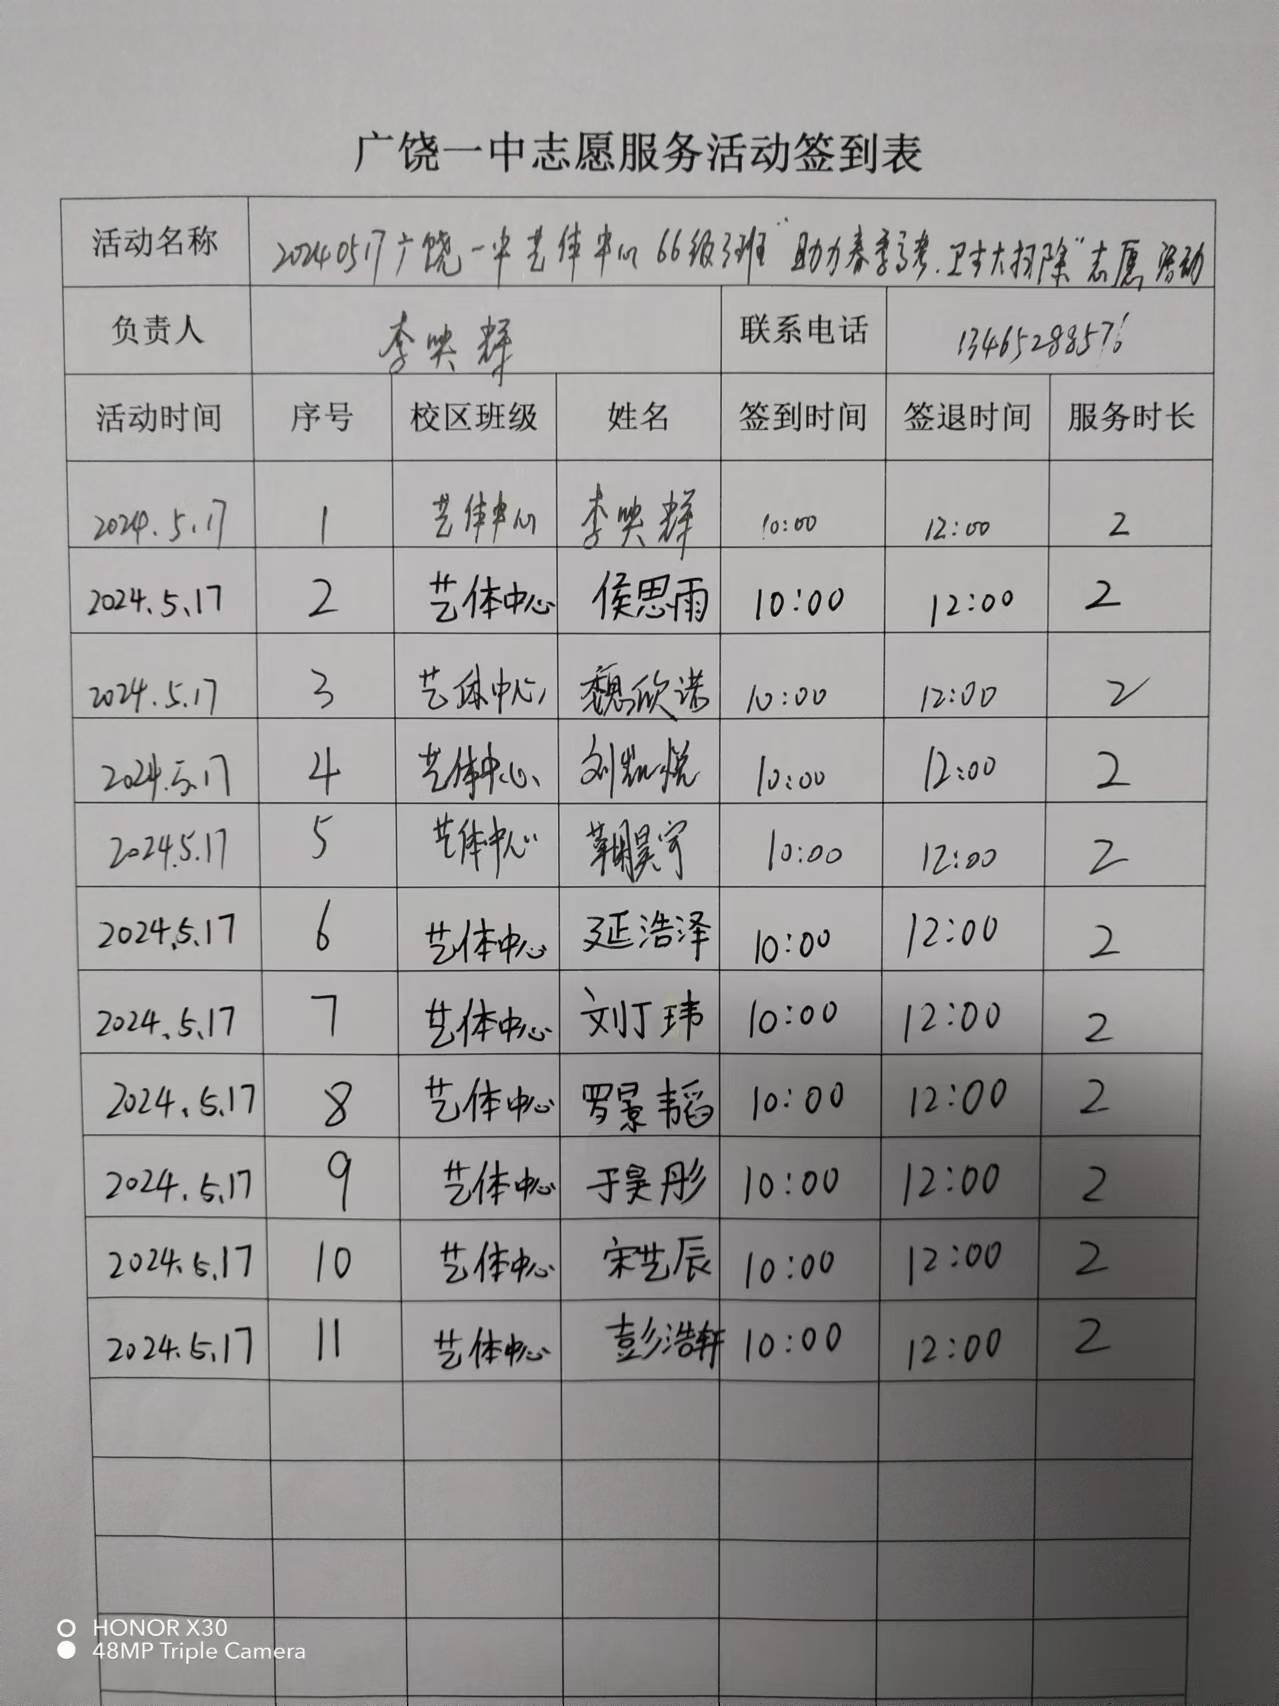 广饶一中志愿服务活动签到表
活动名称 20240517广饶一中艺体中心66级3班"助力春季高考.卫生大扫除"志愿活动
负责人 李映辉 联系电话 13465288576
活动时间 序号 校区班级 姓名 签到时间 签退时间 服务时长
2024.5.17 1 艺体中心 李映辉 10:00 12:00 2
2024.5.17 2 艺体中心 侯思雨 10:00 12:00 2
2024.5.17 3 艺体中心 魏欣诺 10:00 12:00 2
2024.5.17 4 艺体中心 刘凯悦 10:00 12:00 2
2024.5.17 5 艺体中心 10:00 12:00 2
2024.5.17 6 艺体中心 延浩泽 10:00 12:00 2
2024.5.17 7 艺体中心 刘丁玮 10:00 12:00 2
2024.5.17 8 艺体中心 罗景韬 10:00 12:00 2
2024.5.17 9 艺体中心 于昊彤 10:00 12:00 2
2024.5.17 10 艺体中心 宋艺辰 10:00 12:00 2
2024.5.17 11 艺体中心 彭浩轩 10:00 12:00 2
HONOR X30
48MP Triple Camera